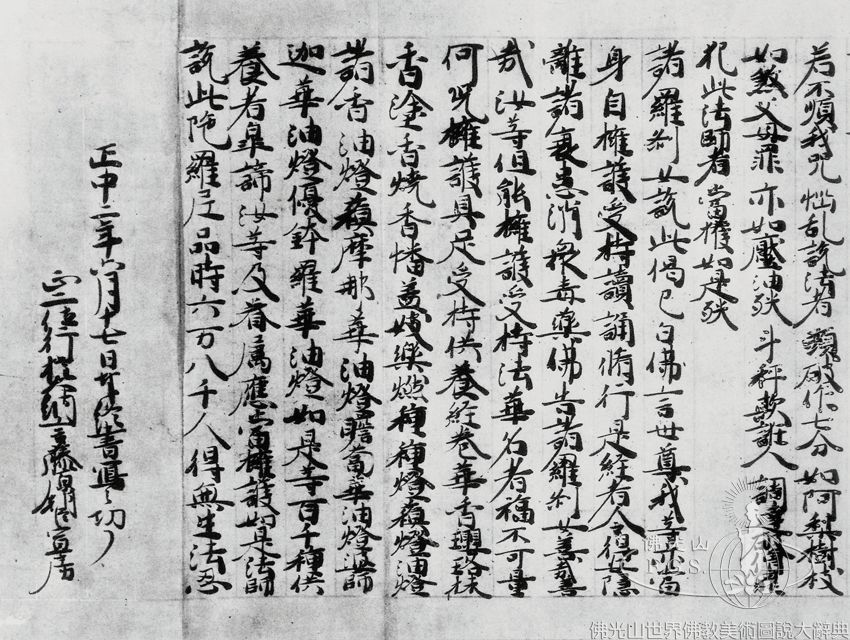 若不順我咒 惱乱說法者 頭破作七分 如阿梨樹枝
如煞父母罪 亦如壓油殃 斗秤欺誑人 調達破僧罪
犯此法師者 當獲如是殃
諸羅刹女說此偈已白佛言世尊我等亦當
身自擁護受持讀誦脩行是經者令得安隱
離諸衰患消衆毒藥佛告諸羅刹女善哉善
哉汝等但能擁護受持法華名者福不可量
何況擁護具足受持供養經卷華香瓔珞抹
香塗香燒香幡盖妓樂燃種種燈蘇燈油燈
諸香油燈蘇摩那華油燈瞻蔔華油燈婆師
迦華油燈優鉢羅華油燈如是等百千種供
養者睪諦汝等及眷属應當擁護如是法師
說此陁羅尼品時六万八千人得無生法忍
正中二年六月十七日 書寫之切了
正二位行權大納言藤原朝臣
佛光山
F.G.S.
佛光山世界佛教美術圖說大辭典